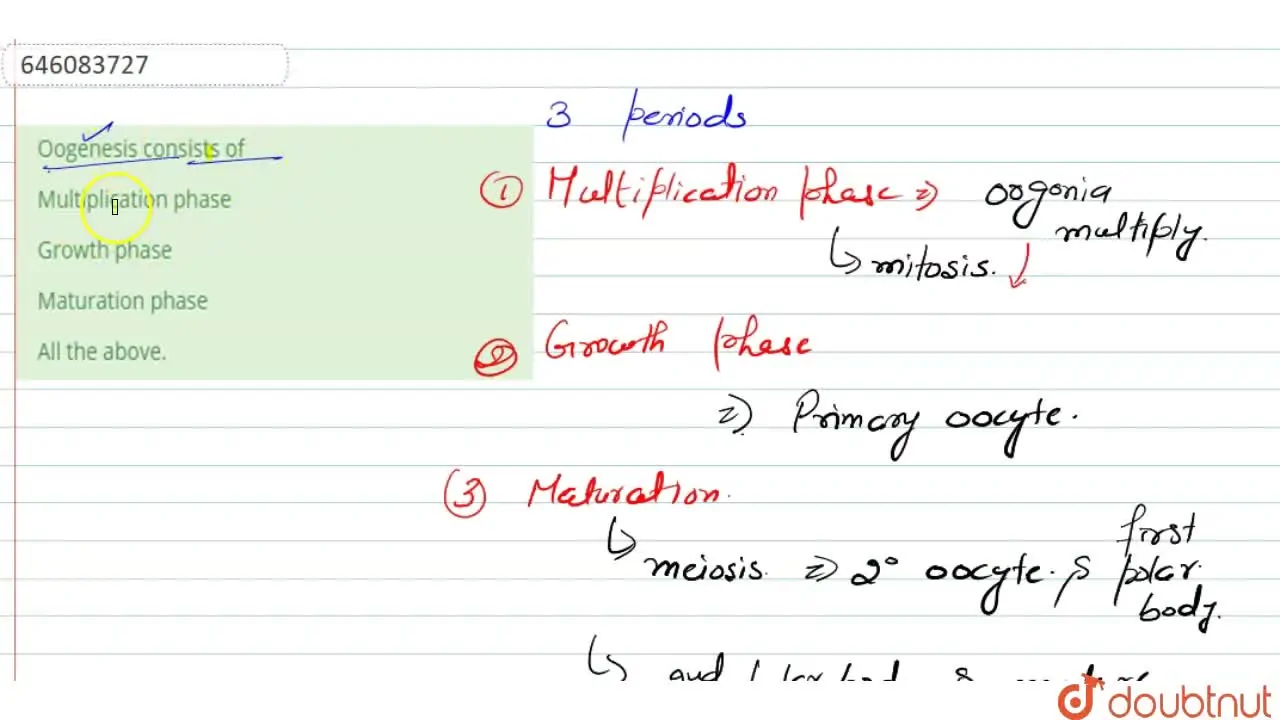 646083727
Oogenesis consists of
Multiplication phase
Growth phase
Maturation phase
All the above.
3 periods
① Multiplication phase ⇒ oogonia
multiply.
↳ mitosis. ↓
② Growth phase
⇒ Primary oocyte.
③ Maturation.
↳ meiosis. ⇒ 2° oocyte. & first
polar
body.
↳
doubtnut